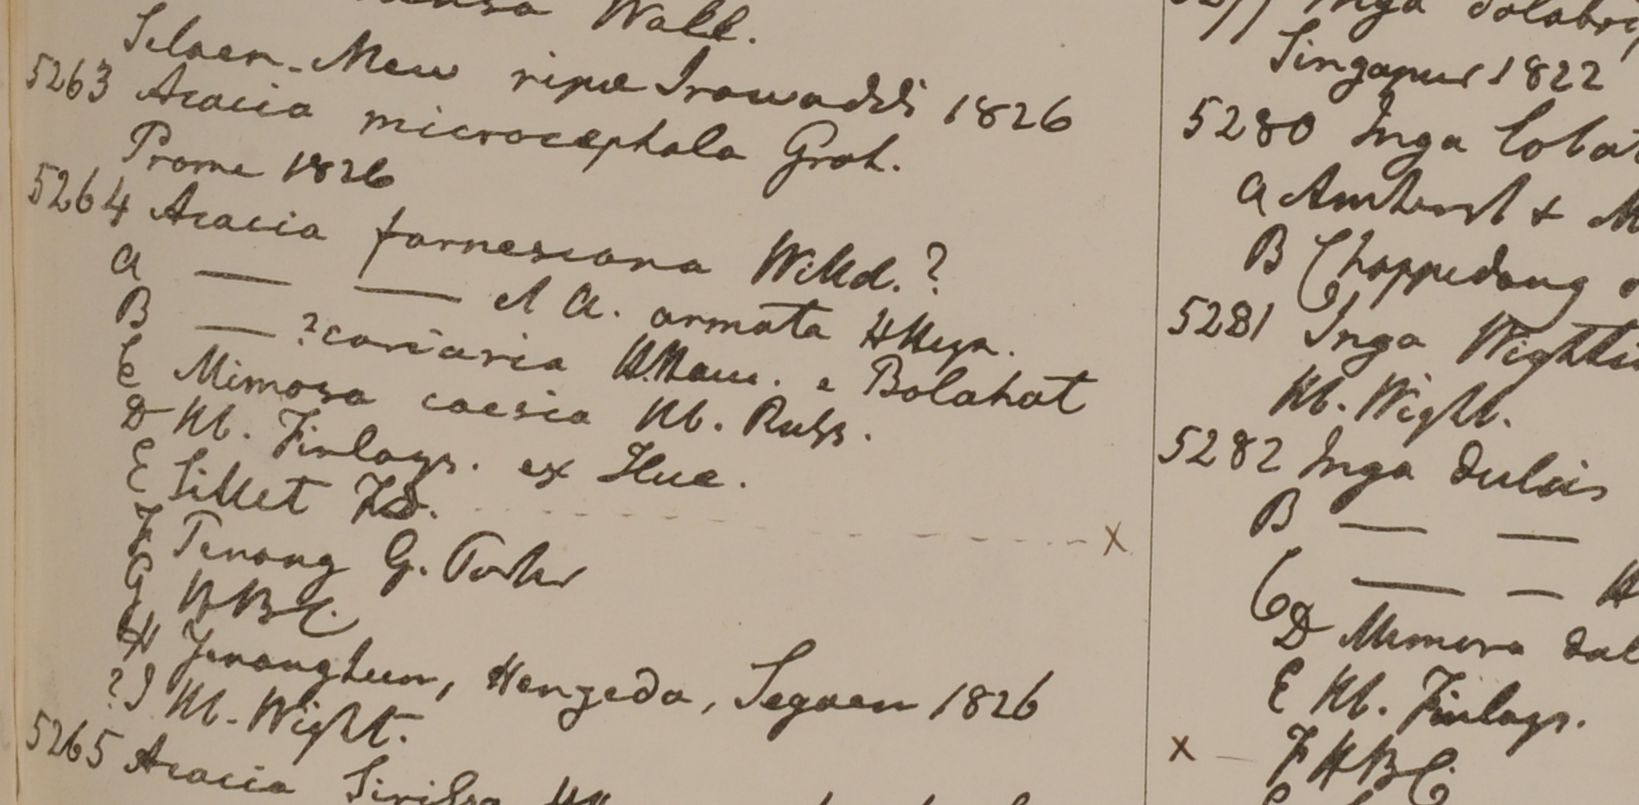 Wall.
Segaen-Mew ripæ Irawaddi 1826
5263 Acacia microcephala Grah.
Prome 1826
5264 Acacia farnesiana Willd.?
A — — et A. armata HHeyn.
B — ? coriaria e Balahat
C Mimosa caesia Hb. Russ.
D Hb. Finlays. ex Hue.
E Sillet FD. X
F Penang G. Porter
G HBC.
H Yenanghuen, Hengeda, Segaen 1826
?I Hb. Wight.
5265 Acacia Sirissa
Inga
Singapur 1822
5280 Inga lobat
A Amherst & M
B Chappedong
5281 Inga Wightia
Hb. Wight.
5282 Inga dulcis
B — —
C — — H
D Mimosa dul
E Hb. Finlays.
X F HBC.